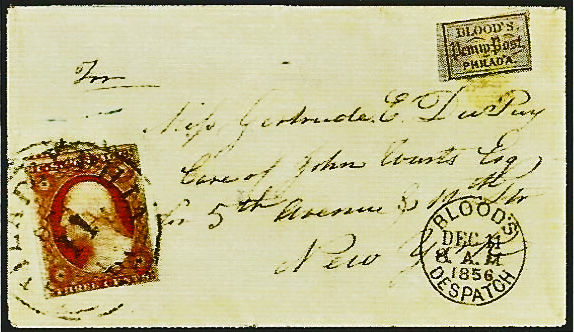 BLOOD'S
Penny Post
PHILAD'A.
For
Miss Gertrude E. DuPuy
Care of John Watts Esq
5th Avenue &
New York
THREE CENTS
BLOOD'S
DEC 11
8 A.M
1856
DESPATCH